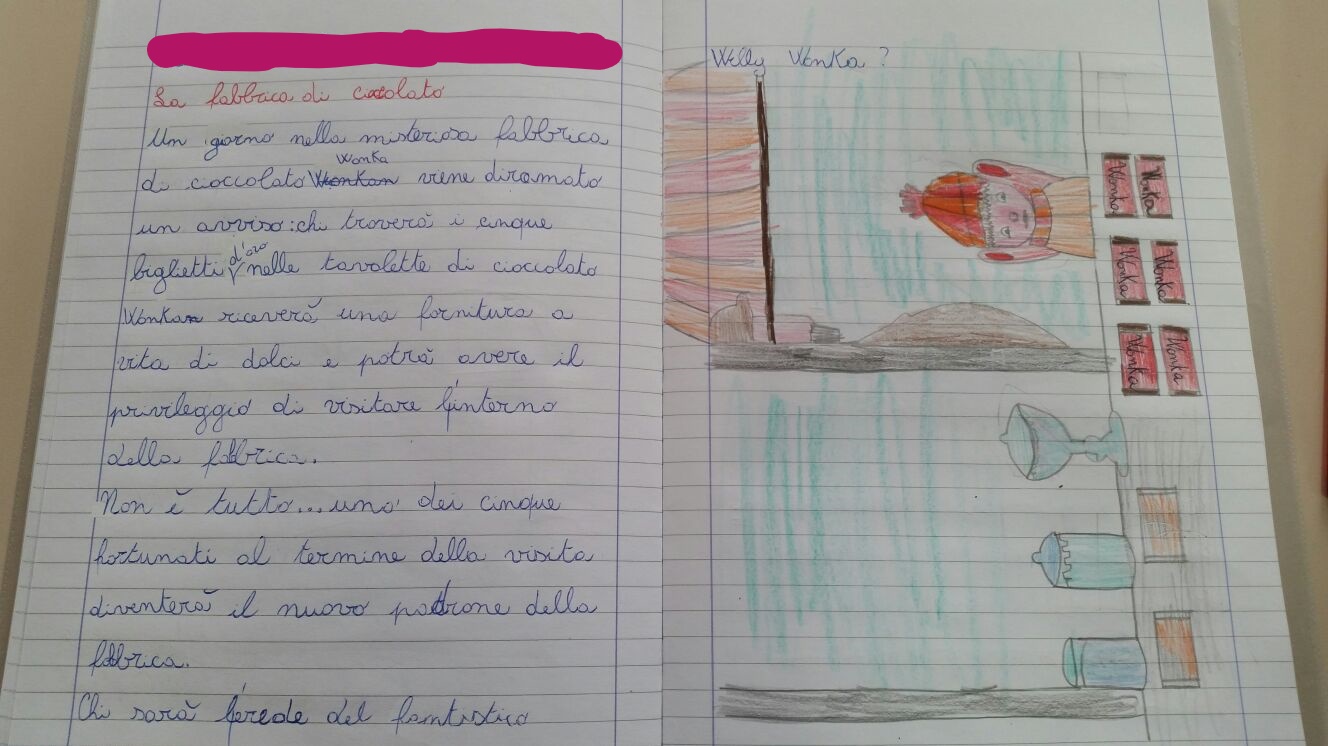 La fabbrica di cioccolato
Un giorno nella misteriosa fabbrica
Wonka
di cioccolato viene diramato
un avviso: chi troverà i cinque
d'oro
biglietti nelle tavolette di cioccolato
Wonka riceverà una fornitura a
vita di dolci e potrà avere il
privileggio di visitare l'interno
della fabbrica.
Non è tutto... uno dei cinque
fortunati al termine della visita
diventerà il nuovo padrone della
fabbrica.
Chi sarà l'erede del fantistico
Willy Wonka?
Wonka
Wonka
Wonka
Wonka
Wonka
Wonka